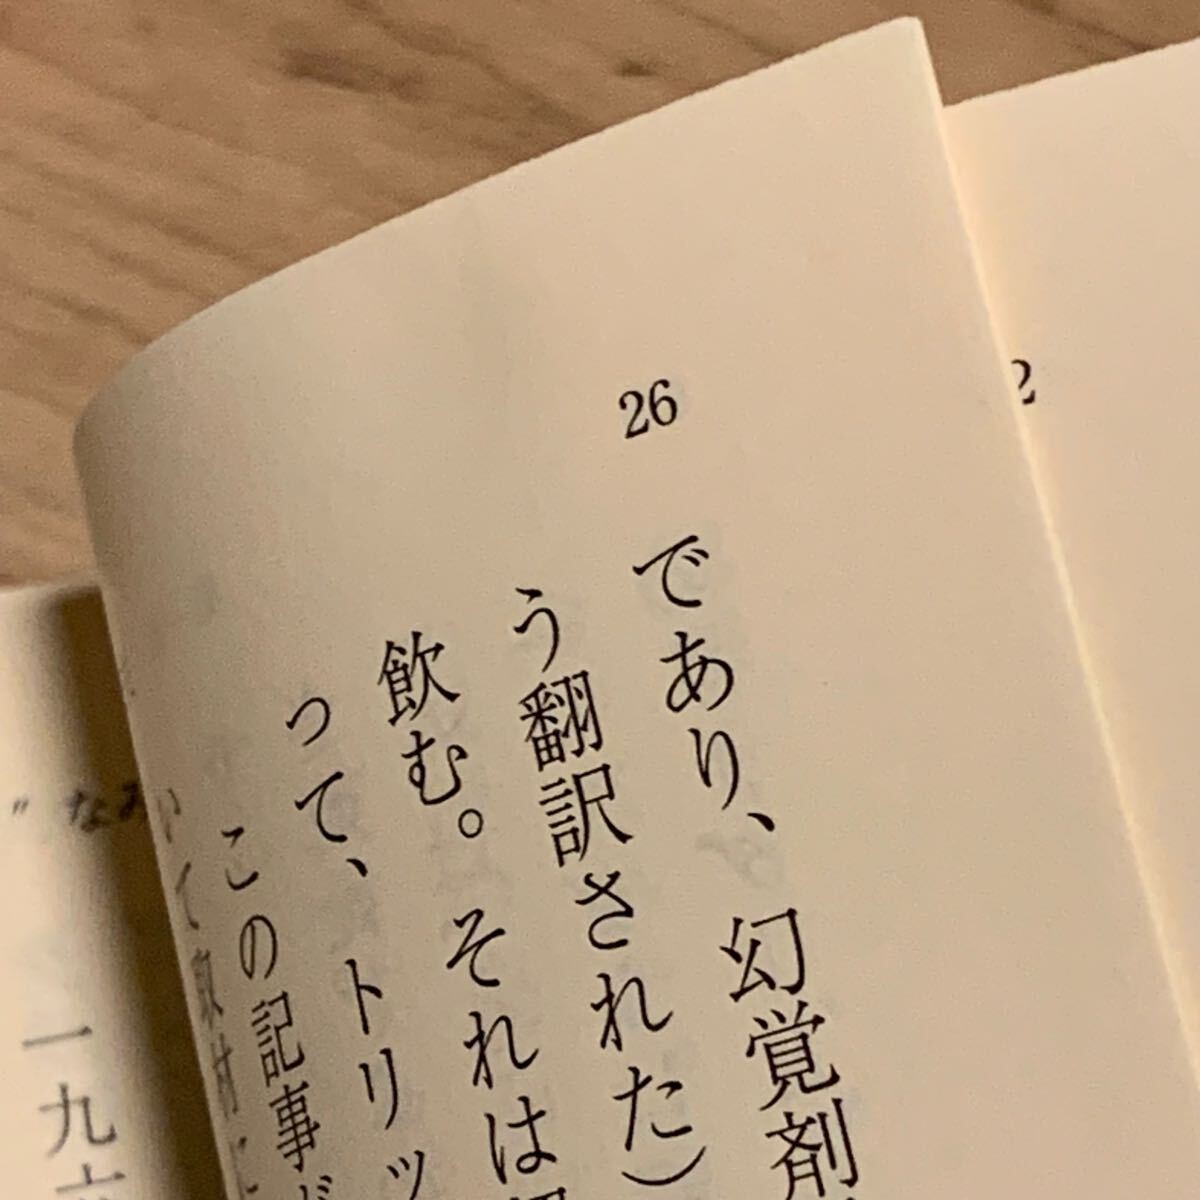 26
であり、幻覚剤
う翻訳された)
飲む。それは
って、トリッ
この記事が
いて取材に
2
" なみ
一九六